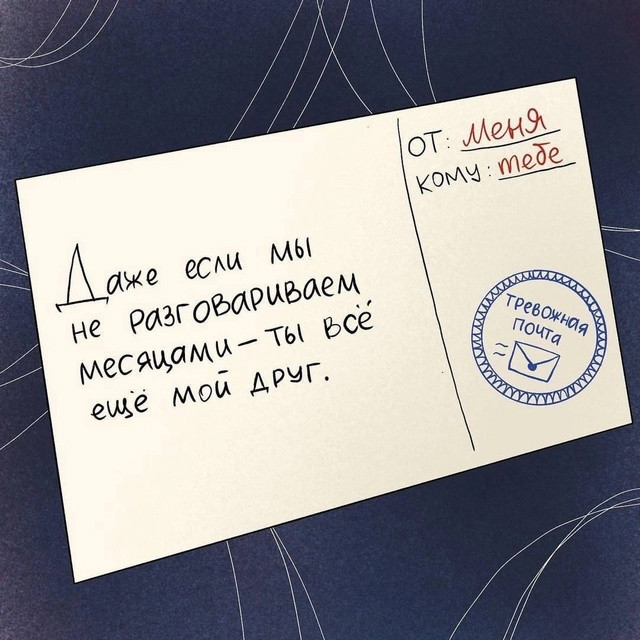 Даже если мы
не разговариваем
месяцами – ты всё
ещё мой друг.
ОТ: Меня
кому: тебе
ТРЕВОЖНАЯ
ПОЧТА